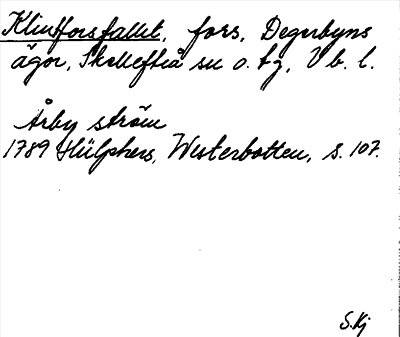 Klintforsfallet, fors, Degerbyns
ägor, Skellefteå sn o. tg, Vb. l.
Årby ström
1789 Hülphers, Westerbotten, s. 107.
S.Kj